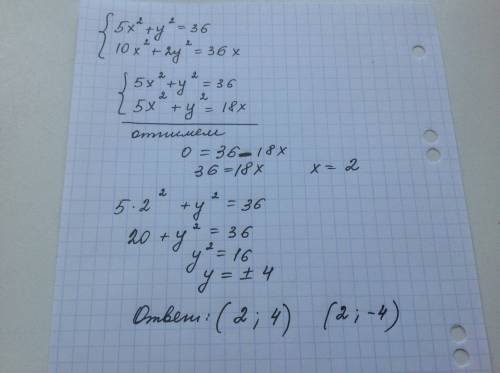 5x² + y² = 36
10x² + 2y² = 36x
5x² + y² = 36
5x² + y² = 18x
отнимем
0 = 36 - 18x
36 = 18x x = 2
5 · 2² + y² = 36
20 + y² = 36
y² = 16
y = ± 4
Ответ: (2; 4) (2; -4)